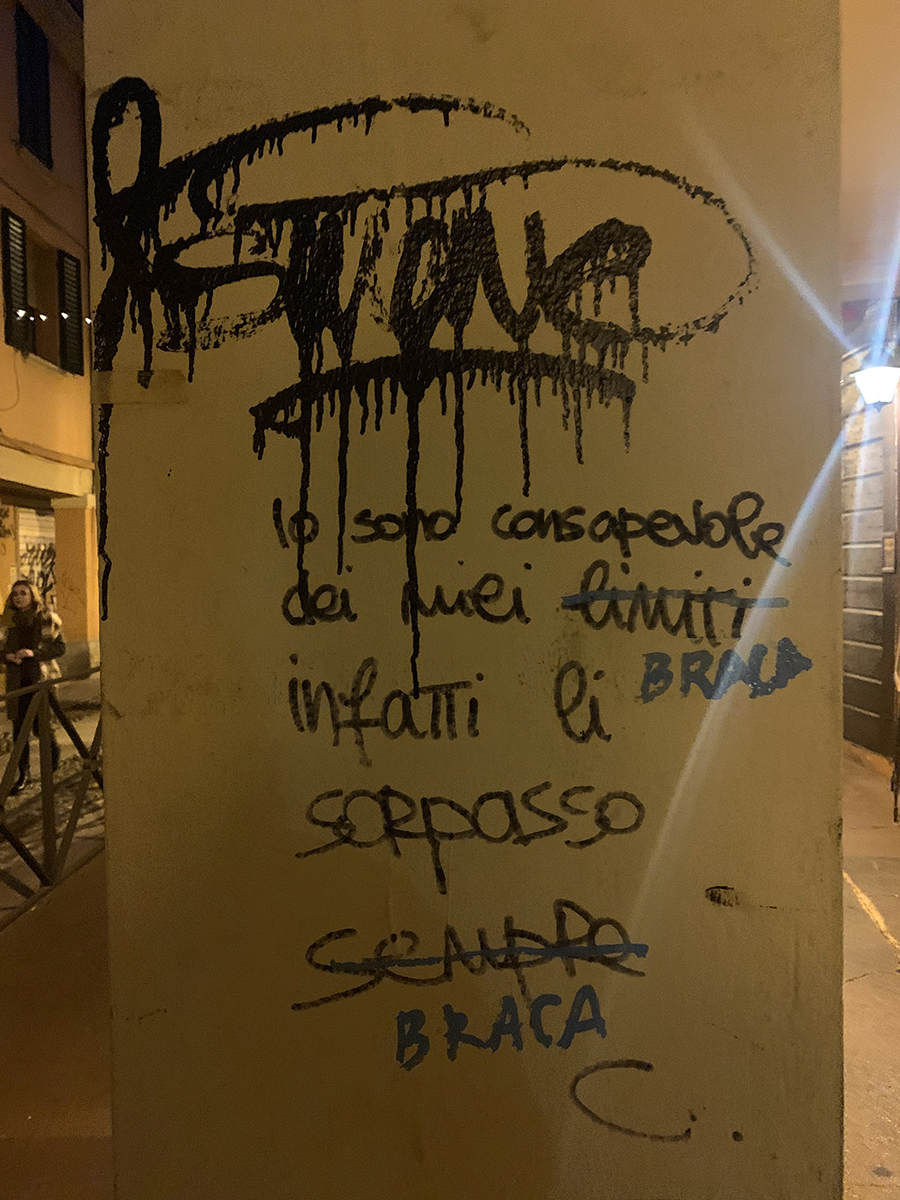 Io sono consapevole
dei miei limiti
BRACA
infatti li
sorpasso
sempre
BRACA
C.